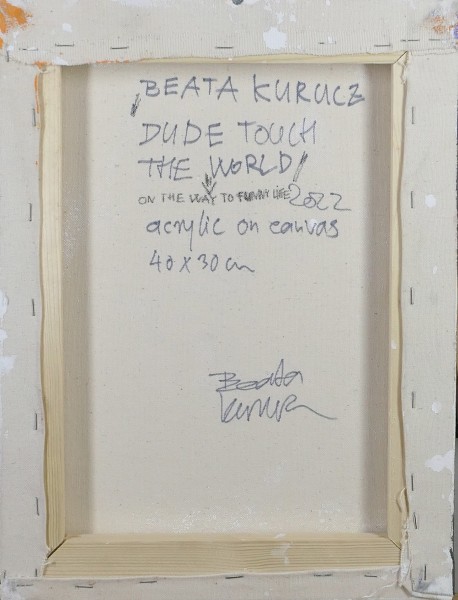 BEATA KURUCZ
DUDE TOUCH
THE WORLD/
ON THE WAY TO FUNNY LIFE 2022
acrylic on canvas
40 x 30 cm
Beata
Kurucz